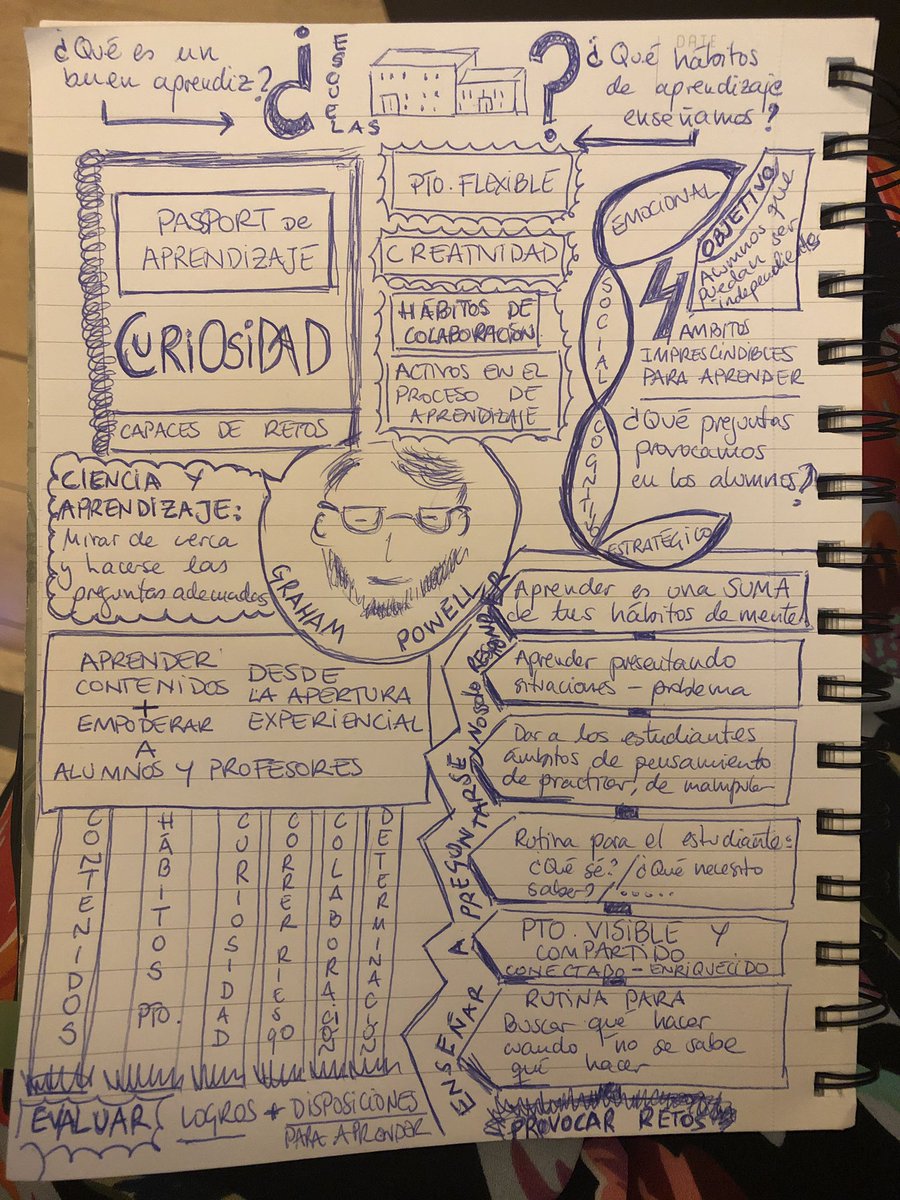 ¿Qué es un
buen aprendiz?
¿ESCUELAS?
DATE
¿Qué hábitos
de aprendizaje
enseñamos?
PASSPORT de
APRENDIZAJE
CURIOSIDAD
CAPACES DE RETOS
PTO. FLEXIBLE
CREATIVIDAD
HÁBITOS DE
COLABORACIÓN
ACTIVOS EN EL
PROCESO DE
APRENDIZAJE
EMOCIONAL
SOCIAL
COGNITIVO
ESTRATÉGICO
OBJETIVO
Alumnos que
puedan ser
independientes
4
ÁMBITOS
IMPRESCINDIBLES
PARA APRENDER
¿Qué preguntas
provocamos
en los alumnos?
CIENCIA Y
APRENDIZAJE:
Mirar de cerca
y hacerse las
preguntas adecuadas
GRAHAM POWELL
APRENDER
CONTENIDOS
+
EMPODERAR
DESDE
LA APERTURA
EXPERIENCIAL
A
ALUMNOS Y PROFESORES
CONTENIDOS
HÁBITOS PTO.
CURIOSIDAD
CORRER RIESGO
COLABORACIÓN
DETERMINACIÓN
EVALUAR LOGROS + DISPOSICIONES
PARA APRENDER
ENSEÑAR A PREGUNTARSE Y NO SOLO RESPONDER
Aprender es una SUMA
de tus hábitos de mente
Aprender presentando
situaciones - problema
Dar a los estudiantes
ámbitos de pensamiento
de practicar, de manipular
Rutina para el estudiante:
¿Qué sé? / ¿Qué necesito
saber? / ......
PTO. VISIBLE Y
COMPARTIDO
CONECTADO - ENRIQUECIDO
RUTINA PARA
Buscar qué hacer
cuando no se sabe
qué hacer
PROVOCAR RETOS